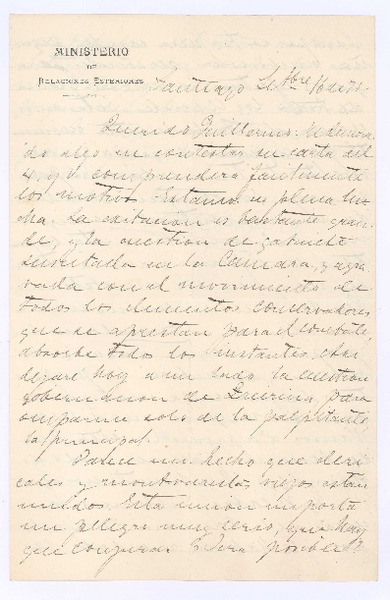 MINISTERIO
DE
RELACIONES ESTERIORES
Santiago Setbre 16 de 75.
Querido Guillermo: He demora-
do algo en contestar su carta del
4, y Ud. comprenderá fácilmente
los motivos. Estamos en plena lu-
cha. La escitacion es bastante gran-
de, y la cuestion de gabinete
suscitada en la Cámara, y agra-
vada con el movimiento de
todos los elementos conservadores
que se aprestan para el combate,
absorbe todos los instantes. Asi
dejaré hoy a un lado la cuestion
gobernacion de Quirino, para
ocuparme solo de la palpitante,
la principal.
Parece un hecho que cleri-
cales y monttvaristas viejos estan
unidos. Esta union importa
un peligro muy serio, que hay
que conjurar. Será posible?